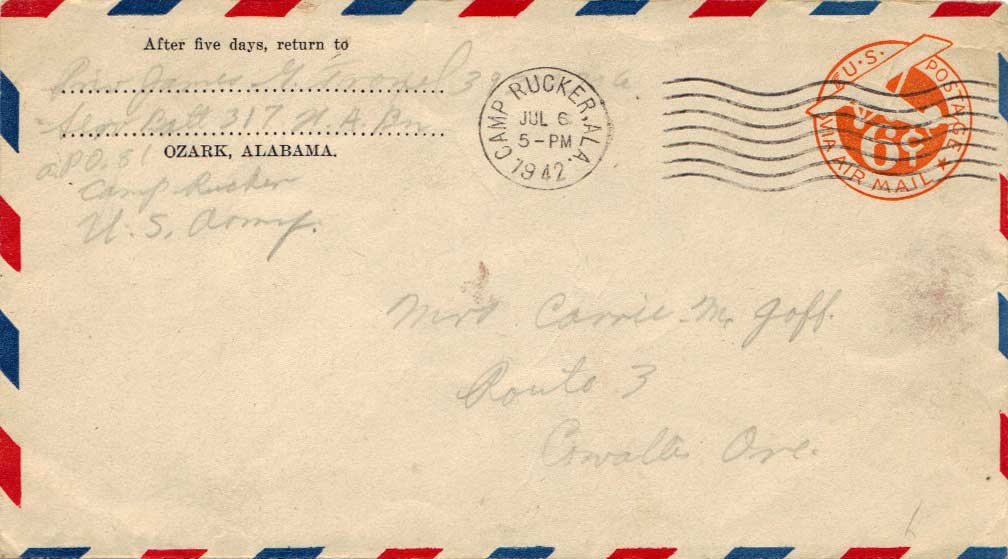 After five days, return to
James G.
Serv. Batt 317 F. A. Bn.
OZARK, ALABAMA.
A.P.O. 81
Camp Rucker
U. S. Army.
CAMP RUCKER, ALA.
JUL 6
5-PM
1942
U.S. POSTAGE
6¢
VIA AIR MAIL
Mrs Carrie M. Goff.
Route 3
Corvallis Ore.